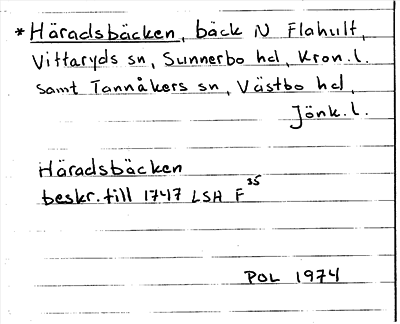 * Häradsbäcken, bäck N Flahult,
Vittaryds sn, Sunnerbo hd, Kron.l.
samt Tannåkers sn, Västbo hd,
Jönk.l.
Häradsbäcken
beskr. till 1747 LSA F 35
POL 1974